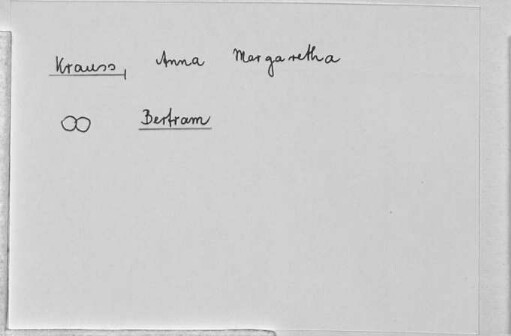 Krauss, Anna Margaretha
∞ Bertram